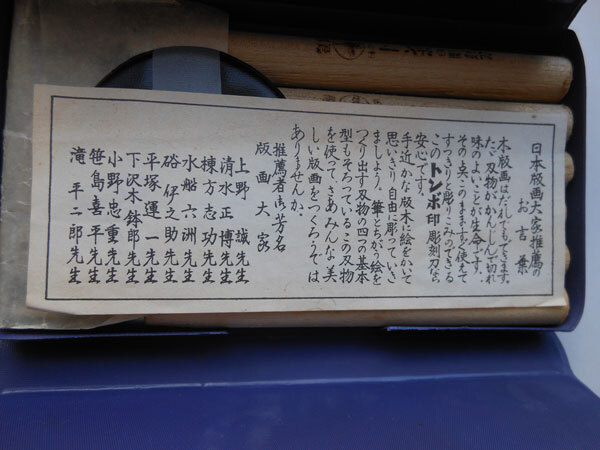 日本版画大家推薦の
お言葉
木版画はだれでもできます。
たゞ刃物がかんじんで切れ
味のよいことが生命です。
その点、このまますぐ使えて
すっきりと彫りこみのできる
このトンボ印彫刻刀なら、
安心です。
手近かな版木に絵をかいて
思いきり、自由に彫っていき
ましょう。筆とちがう絵を
つくり出す刃物の四つの基本
型もそろっているこの刃物
を使って、さあみんな美
しい版画をつくろうでは
ありませんか。
推薦者御芳名
版画大家
上野誠先生
清水正博先生
棟方志功先生
水船六洲先生
硲伊之助先生
平塚運一先生
下沢木鉢郎先生
小野忠重先生
笹島喜平先生
滝平二郎先生